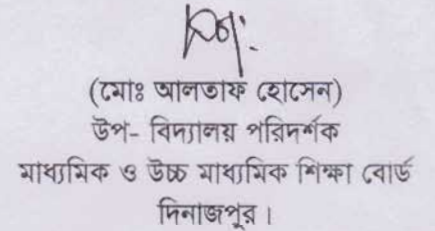 (মোঃ আলতাফ হোসেন)
উপ- বিদ্যালয় পরিদর্শক
মাধ্যমিক ও উচ্চ মাধ্যমিক শিক্ষা বোর্ড
দিনাজপুর।